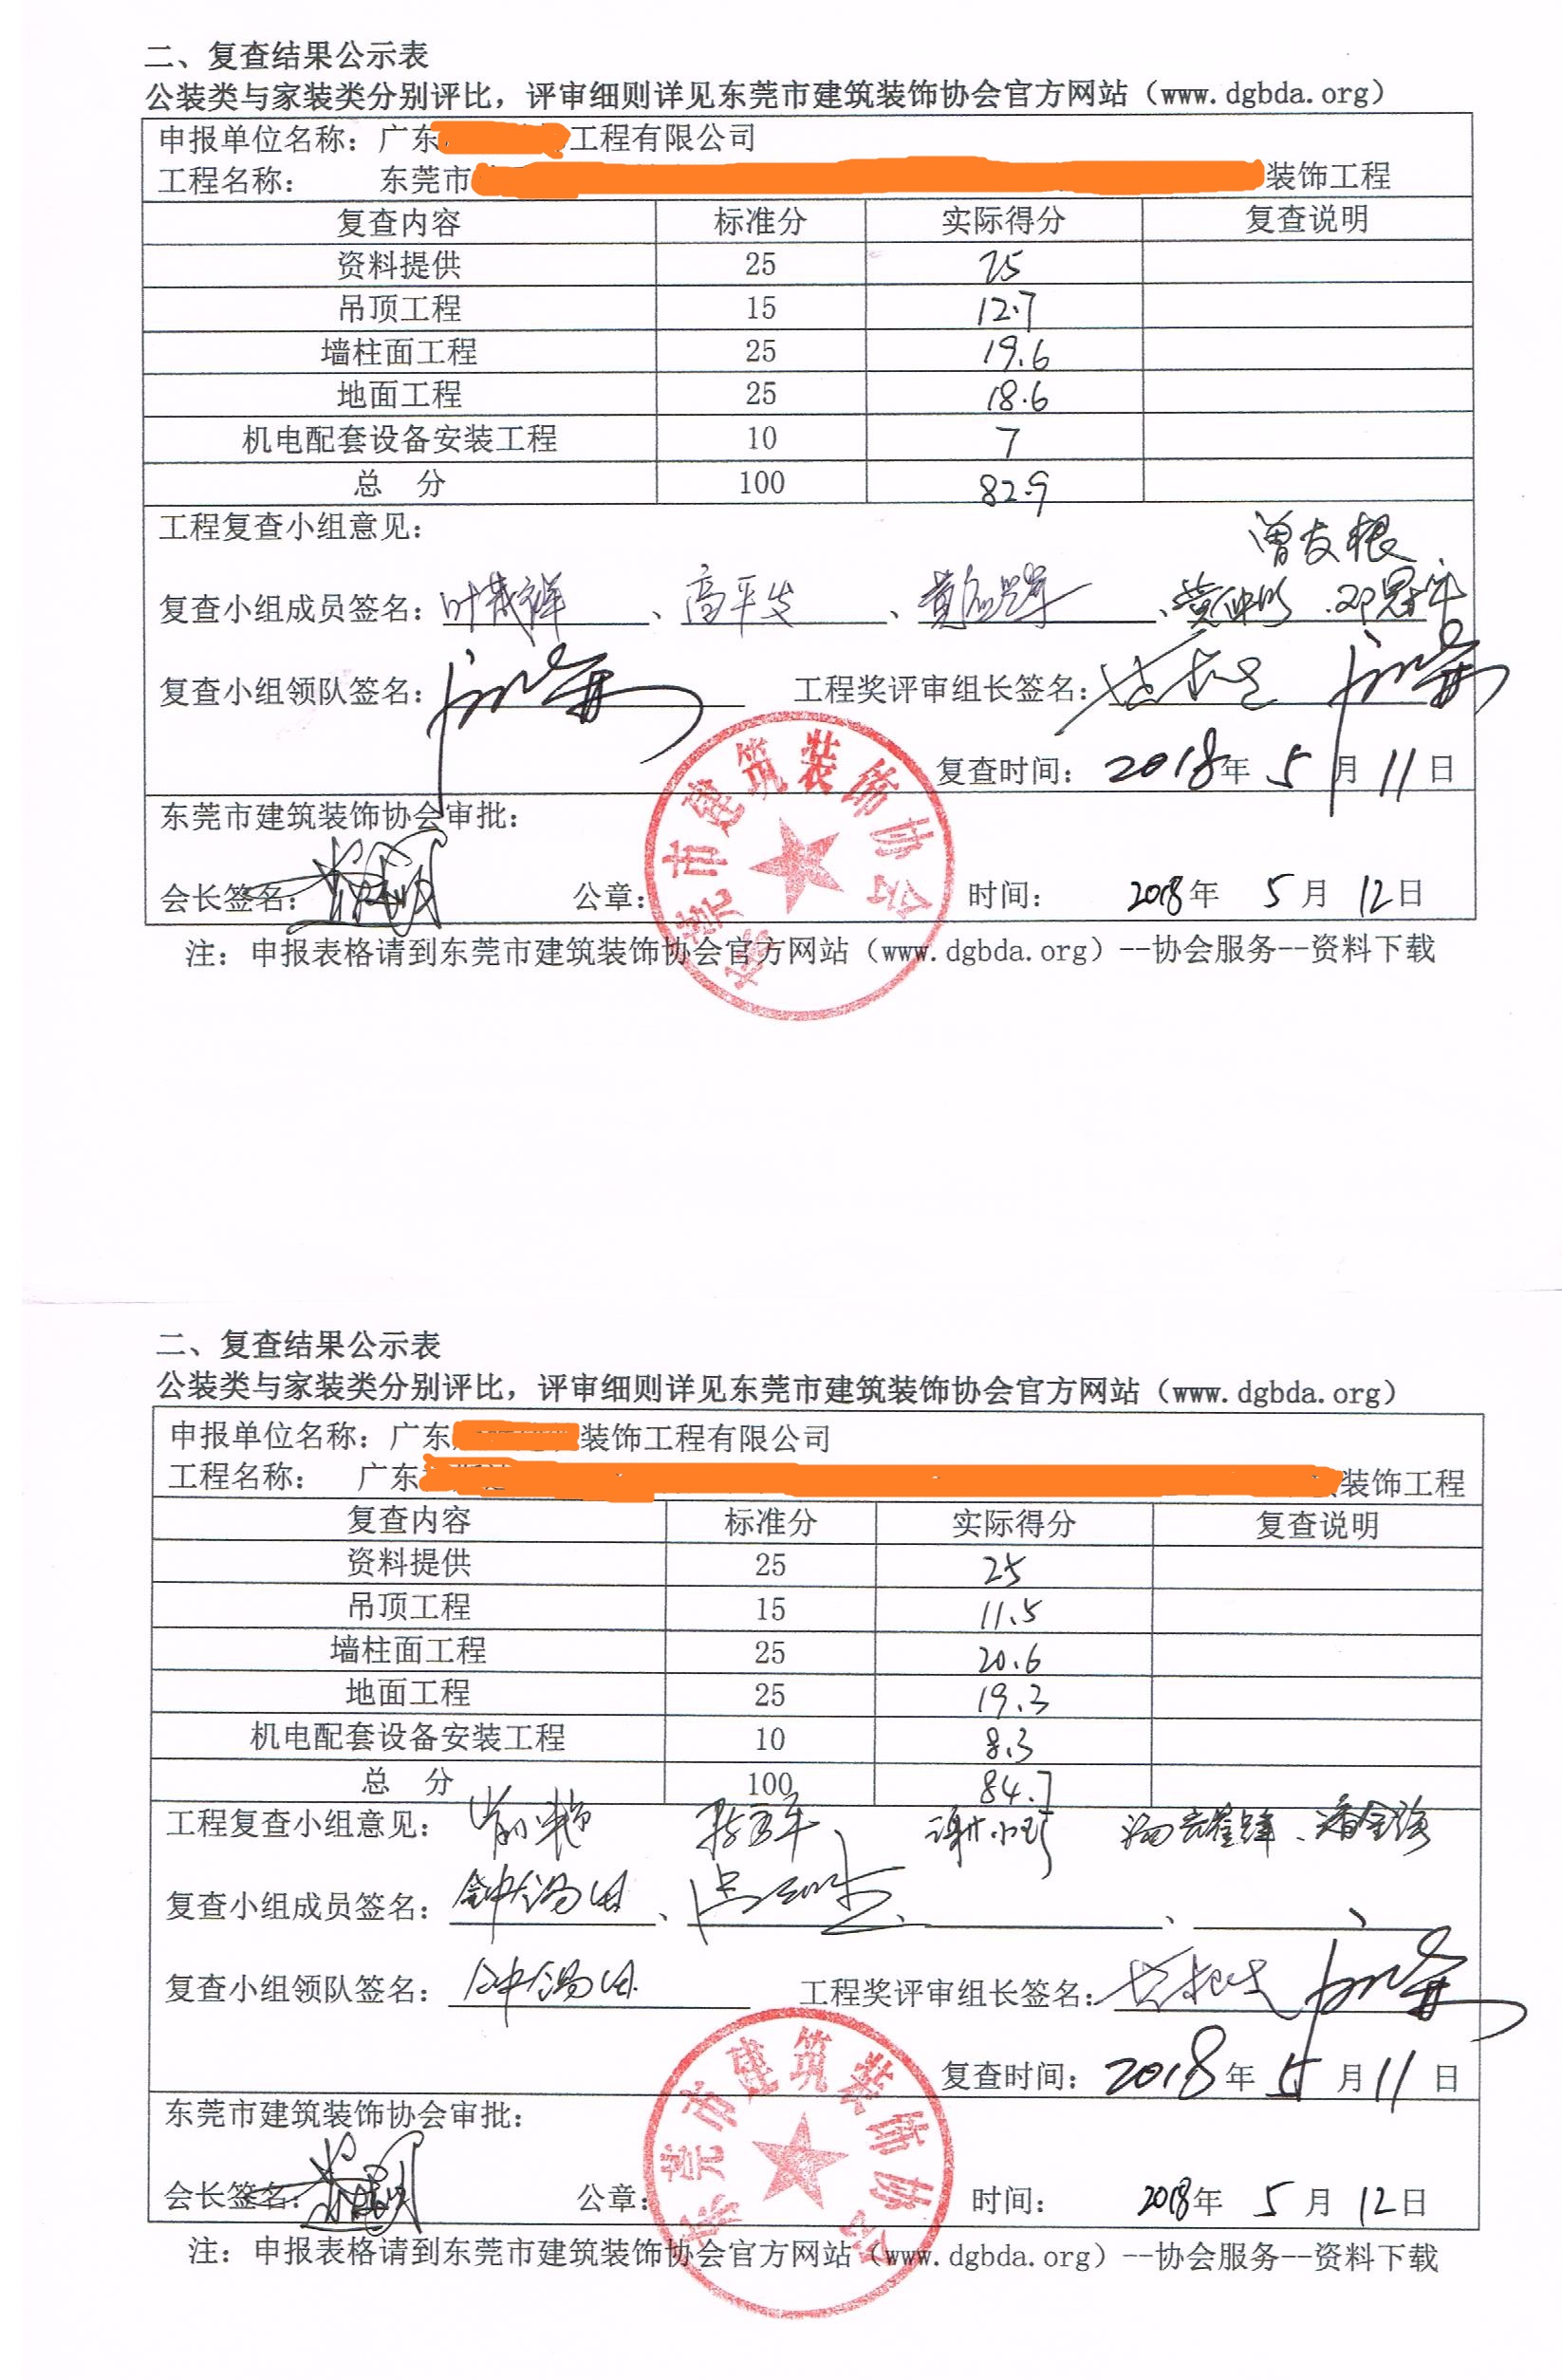 二、复查结果公示表
公装类与家装类分别评比，评审细则详见东莞市建筑装饰协会官方网站（www.dgbda.org）
申报单位名称：广东 工程有限公司
工程名称： 东莞市 装饰工程
复查内容 标准分 实际得分 复查说明
资料提供 25 25
吊顶工程 15 12.7
墙柱面工程 25 19.6
地面工程 25 18.6
机电配套设备安装工程 10 7
总 分 100 82.9
工程复查小组意见：
曾友根
复查小组成员签名：叶茂祥、高平发、、
复查小组领队签名： 工程奖评审组长签名：
复查时间：2018年5月11日
东莞市建筑装饰协会审批：
会长签名： 公章： 时间： 2018年 5月 12日
东莞市建筑装饰协会
注：申报表格请到东莞市建筑装饰协会官方网站（www.dgbda.org）--协会服务--资料下载
二、复查结果公示表
公装类与家装类分别评比，评审细则详见东莞市建筑装饰协会官方网站（www.dgbda.org）
申报单位名称：广东 装饰工程有限公司
工程名称： 广东 装饰工程
复查内容 标准分 实际得分 复查说明
资料提供 25 25
吊顶工程 15 11.5
墙柱面工程 25 20.6
地面工程 25 19.3
机电配套设备安装工程 10 8.3
总 分 100 84.7
工程复查小组意见：
复查小组成员签名：、、、
复查小组领队签名： 工程奖评审组长签名：
复查时间：2018年5月11日
东莞市建筑装饰协会审批：
会长签名： 公章： 时间： 2018年 5月 12日
东莞市建筑装饰协会
注：申报表格请到东莞市建筑装饰协会官方网站（www.dgbda.org）--协会服务--资料下载